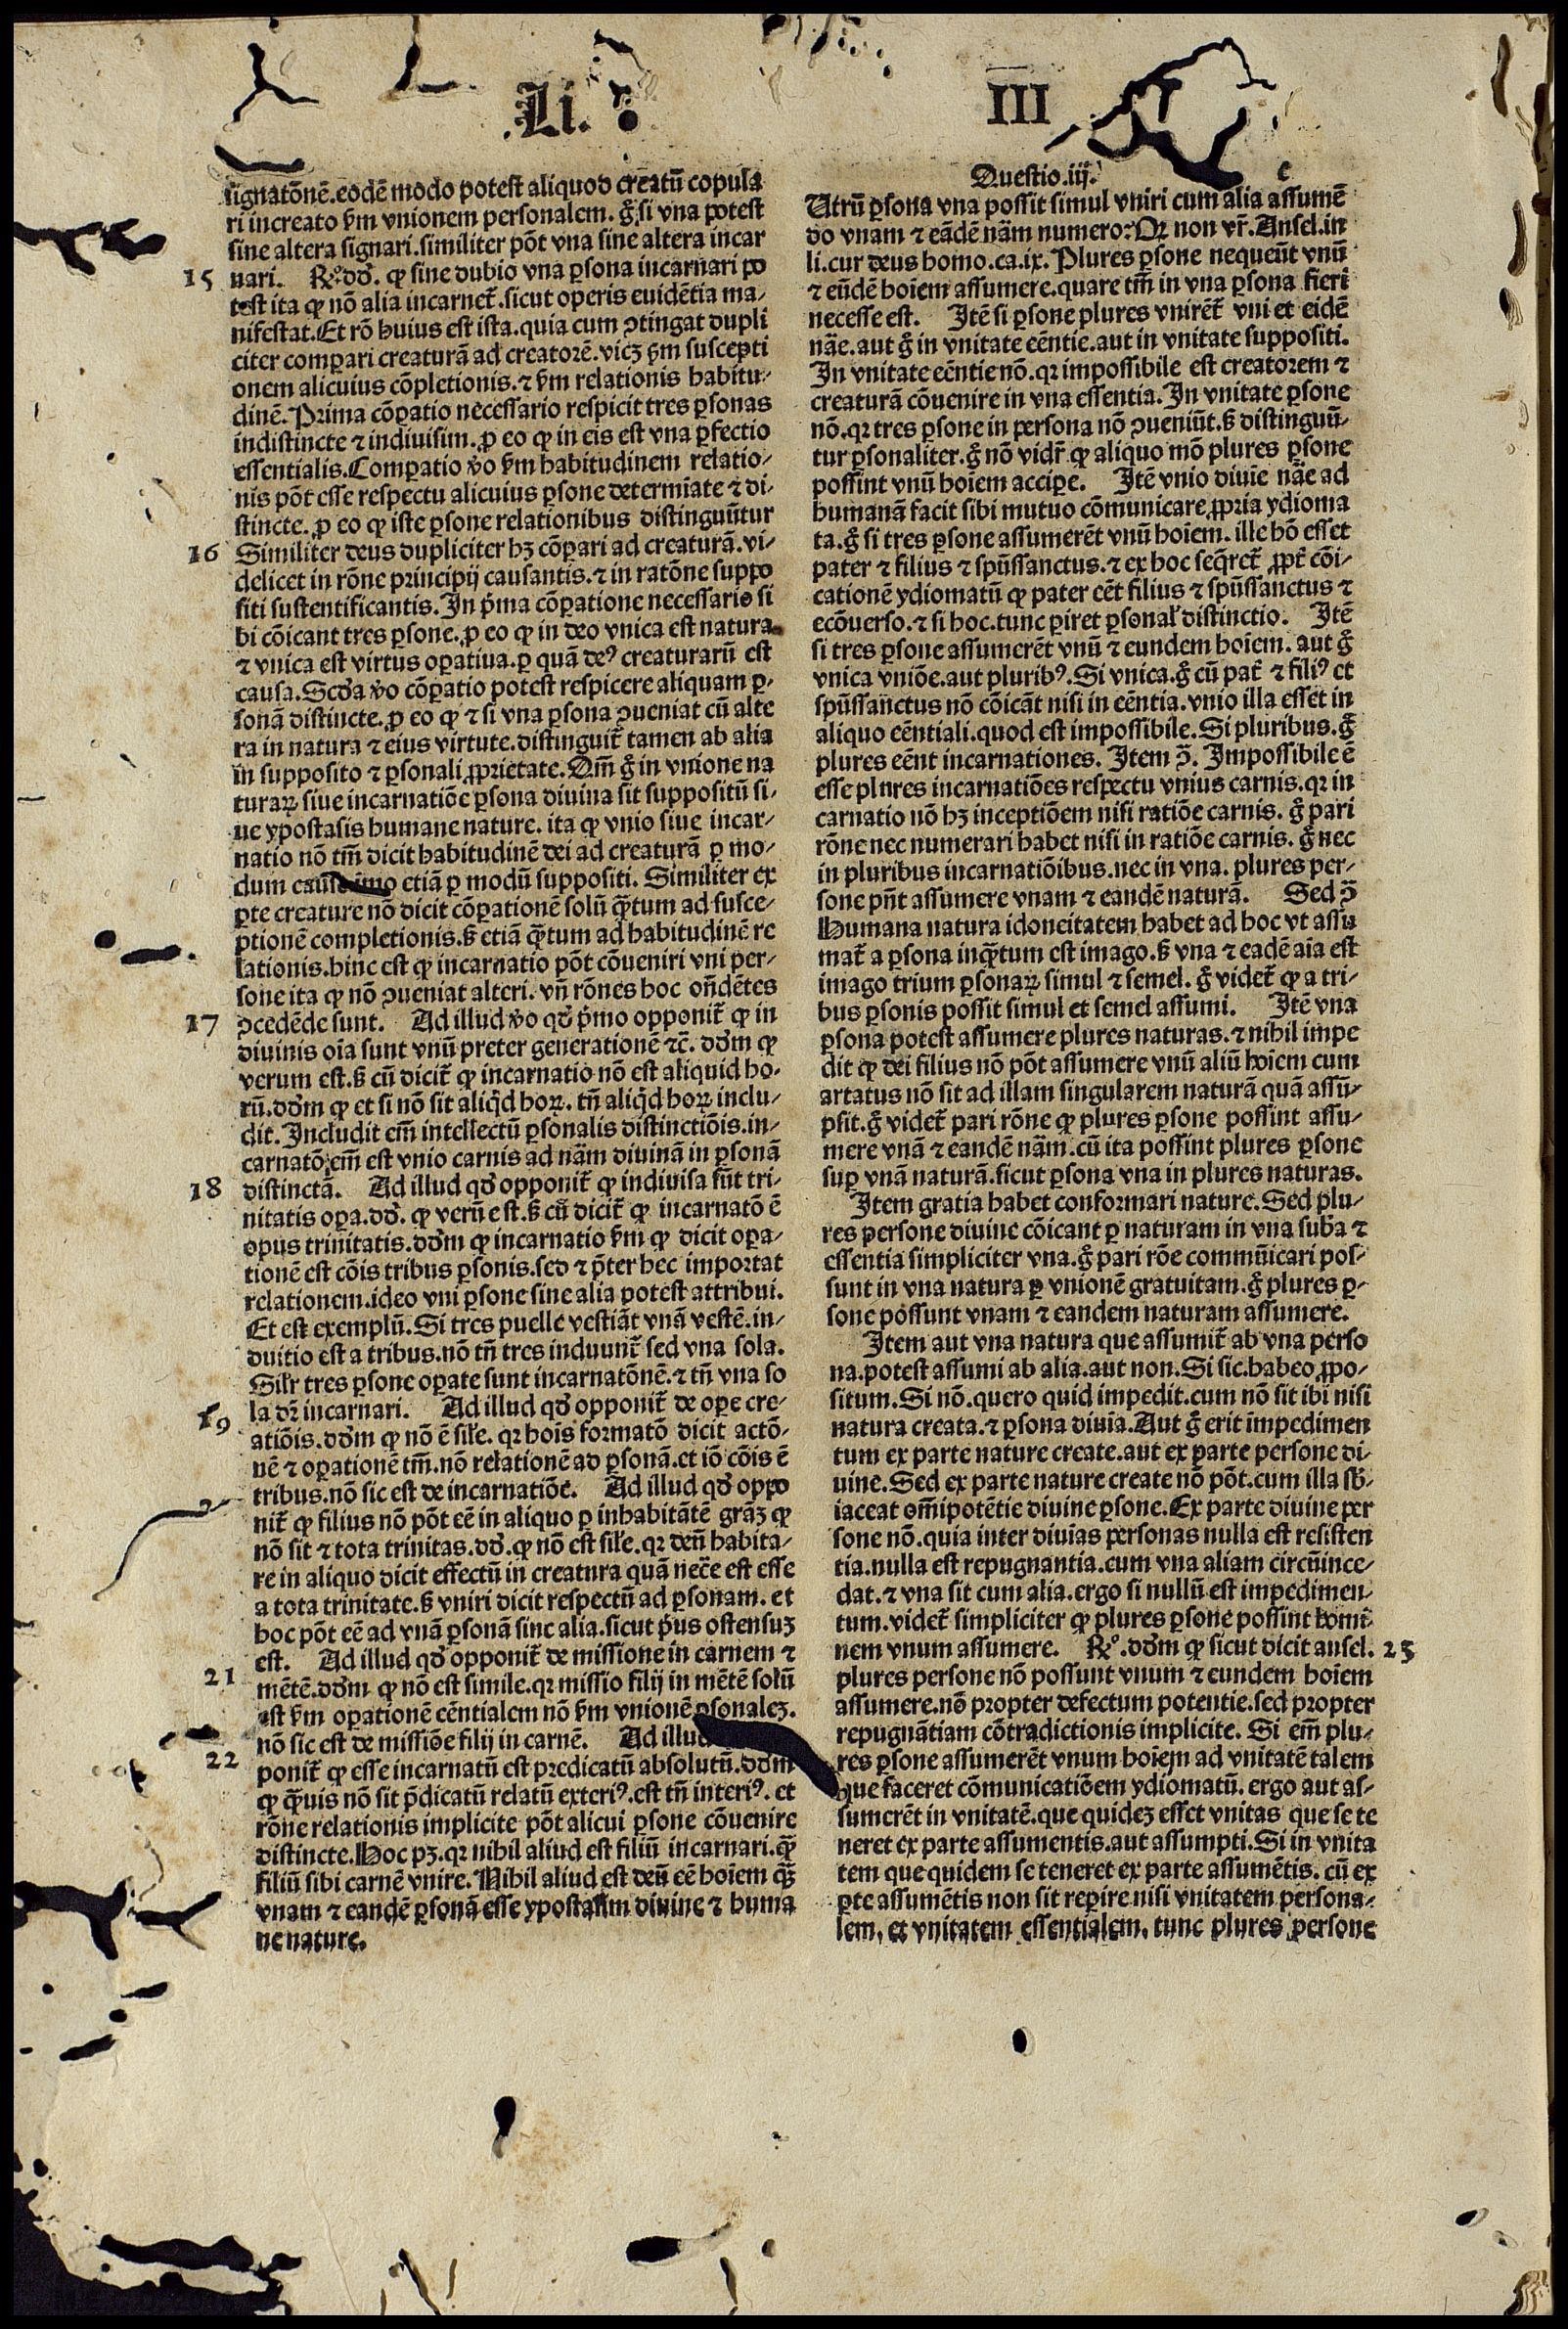 Li.
III
signatōnē.eodē modo potest aliquod creatū copula
ri increato ẜm vnionem personalem. gͦ si vna potest
sine altera signari.similiter pōt vna sine altera incar
15 nari. R̃ͦ dōꝫ. ꝙ sine dubio vna ꝑsona incarnari po
test ita ꝙ nō alia incarnet̃.sicut operis euidētia ma-
nifestat.Et rō huius est ista.quia cum ꝯtingat dupli
citer comꝑari creaturā ad creatorē.vicꝫ ẜm suscepti
onem alicuius cōpletionis.⁊ ẜm relationis habitu-
dinē.Prima cōꝑatio necessario respicit tres ꝑsonas
indistincte ⁊ indiuisim.ꝓ eo ꝙ in eis est vna ꝑfectio
essentialis.Comꝑatio v̊o ẜm habitudinem relatio-
nis pōt esse respectu alicuius ꝑsone determīate ⁊ di-
stincte.ꝓ eo ꝙ iste ꝑsone relationibus distinguūtur
16 Similiter deus dupliciter hꝫ cōꝑari ad creaturā.vi-
delicet in rōne principij causantis.⁊ in ratōne suppo
siti sustentificantis.In p̄ma cōꝑatione necessario si
bi cōicant tres ꝑsone.ꝓ eo ꝙ in deo vnica est natura
⁊ vnica est virtus oꝑatiua.ꝑ quā deꝰ creaturarū est
causa.Scd̄a v̊o cōꝑatio potest respicere aliquam ꝑ-
sonā distincte.ꝓ eo ꝙ ⁊ si vna ꝑsona ꝯueniat cū alte
ra in natura ⁊ eius virtute.distinguit̃ tamen ab alia
in supposito ⁊ ꝑsonali ꝓprietate.Qm̄ gͦ in vnione na
turaꝝ siue incarnatiōe ꝑsona diuina sit suppositū si-
ue ypostasis humane nature. ita ꝙ vnio siue incar-
natio nō tm̄ dicit habitudinē dei ad creaturā ꝑ mo-
dum cause imo etiā ꝑ modū suppositi. Similiter ex
ꝑte creature nō dicit cōꝑationē solū q̄tum ad susce-
ptionē completionis.ꝫ etiā q̄tum ad habitudinē re
lationis.hinc est ꝙ incarnatio pōt cōueniri vni per-
sone ita ꝙ nō ꝯueniat alteri. vn̄ rōnes hoc on̄dētes
17 ꝯcedēde sunt. Ad illud v̊o qd̄ p̄mo opponit̃ ꝙ in
diuinis oīa sunt vnū preter generationē ⁊c̄. dōm ꝙ
verum est.ꝫ cū dicit̃ ꝙ incarnatio nō est aliquid ho-
rū.dōm ꝙ et si nō sit aliq̇d hoꝝ. tn̄ aliq̇d hoꝝ inclu-
dit.Includit em̄ intellectū ꝑsonalis distinctiōis.in-
carnatō em̄ est vnio carnis ad nām diuinā in ꝑsonā
18 distinctā. Ad illud qd̄ opponit̃ ꝙ indiuisa sūt tri-
nitatis oꝑa.dōꝫ. ꝙ verū est.ꝫ cū dicit̃ ꝙ incarnatō ē
opus trinitatis.dōm ꝙ incarnatio ẜm ꝙ dicit oꝑa-
tionē est cōis tribus ꝑsonis.sed ⁊ p̄ter hec importat
relationem.ideo vni ꝑsone sine alia potest attribui.
Et est exemplū.Si tres puelle vestiāt vnā vestē.in-
duitio est a tribus.nō tn̄ tres induunt̃ sed vna sola.
Sil̃r tres ꝑsone oꝑate sunt incarnatōnē.⁊ tn̄ vna so
19 la dr̄ incarnari. Ad illud qd̄ opponit̃ de oꝑe cre-
atiōis.dōm ꝙ nō ē sil̃e. qꝛ hoīs formatō dicit actō-
nē ⁊ oꝑationē tm̄.nō relationē ad ꝑsonā.et iō cōis ē
tribus.nō sic est de incarnatiōe. Ad illud qd̄ oppo
nit̃ ꝙ filius nō pōt eē in aliquo ꝑ inhabitātē grāꝫ ꝙ
nō sit ⁊ tota trinitas.dōꝫ.ꝙ nō est sil̃e.qꝛ deū habita-
re in aliquo dicit effectū in creatura quā necē est esse
a tota trinitate.ꝫ vniri dicit respectū ad ꝑsonam. et
hoc pōt eē ad vnā ꝑsonā sine alia.sicut p̄us ostensuꝫ
est. Ad illud qd̄ opponit̃ de missione in carnem ⁊
21 mētē.dōm ꝙ nō est simile.qꝛ missio filij in mētē solū
est ẜm oꝑationē eēntialem nō ẜm vnionē ꝑsonaleꝫ.
nō sic est de missiōe filij in carnē. Ad illud
22 ponit̃ ꝙ esse incarnatū est predicatū absolutū.dōm
ꝙ q̄uis nō sit p̄dicatū relatū exteriꝰ.est tn̄ interiꝰ. et
rōne relationis implicite pōt alicui ꝑsone cōuenire
distincte.Hoc pꝫ.qꝛ nihil aliud est filiū incarnari.q̄
filiū sibi carnē vnire.Nihil aliud est deū eē hoīem q̄ꝫ
vnam ⁊ eandē ꝑsonā esse ypostasim diuine ⁊ huma
ne nature.
Questio.iij.
Utrū ꝑsona vna possit simul vniri cum alia assumē
do vnam ⁊ eādē nām numero:Qꝛ non vr̄.Ansel.in
li.cur deus homo.ca.ix. Plures ꝑsone nequeūt vnū
⁊ eūdē hoīem assumere.quare tm̄ in vna ꝑsona fieri
necesse est. Itē si ꝑsone plures vnirēt̃ vni et eidē
nāe.aut gͦ in vnitate eēntie.aut in vnitate suppositi.
In vnitate eēntie nō.qꝛ impossibile est creatorem ⁊
creaturā cōuenire in vna essentia.In vnitate ꝑsone
nō.qꝛ tres ꝑsone in persona nō ꝯueniūt.ꝫ distinguū-
tur ꝑsonaliter.gͦ nō vidr̄ ꝙ aliquo mō plures ꝑsone
possint vnū hoīem acciꝑe. Itē vnio diuīe nāe ad
humanā facit sibi mutuo cōmunicare ꝓpria ydioma
ta.gͦ si tres ꝑsone assumerēt vnū hoīem. ille hō esset
pater ⁊ filius ⁊ spūssanctus.⁊ ex hoc seq̄ret̃ ꝓpt̃ cōi-
cationē ydiomatū ꝙ pater eēt filius ⁊ spūssanctus ⁊
ecōuerso.⁊ si hoc.tunc ꝑiret ꝑsonal̃ distinctio. Itē
si tres ꝑsone assumerēt vnū ⁊ eundem hoīem. aut gͦ
vnica vniōe.aut pluribꝰ.Si vnica.gͦ cū pat̃ ⁊ filiꝰ et
spūssanctus nō cōicāt nisi in eēntia.vnio illa esset in
aliquo eēntiali.quod est impossibile.Si pluribus.gͦ
plures eēnt incarnationes. Item ꝯ̄. Impossibile ē
esse plures incarnatiōes respectu vnius carnis.qꝛ in
carnatio nō hꝫ inceptiōem nisi ratiōe carnis. gͦ pari
rōne nec numerari habet nisi in ratiōe carnis. gͦ nec
in pluribus incarnatiōibus.nec in vna. plures per-
sone pn̄t assumere vnam ⁊ eandē naturā. Sed ꝯ̄
Humana natura idoneitatem habet ad hoc vt assu
mat̃ a ꝑsona inq̄tum est imago.ꝫ vna ⁊ eadē aīa est
imago trium ꝑsonaꝝ simul ⁊ semel. gͦ videt̃ ꝙ a tri-
bus ꝑsonis possit simul et semel assumi. Itē vna
ꝑsona potest assumere plures naturas.⁊ nihil impe
dit ꝙ dei filius nō pōt assumere vnū aliū hoīem cum
artatus nō sit ad illam singularem naturā quā assū-
psit.gͦ videt̃ pari rōne ꝙ plures ꝑsone possint assu-
mere vnā ⁊ eandē nām.cū ita possint plures ꝑsone
suꝑ vnā naturā.sicut ꝑsona vna in plures naturas.
Item gratia habet conformari nature.Sed plu-
res persone diuine cōicant ꝑ naturam in vna suba ⁊
essentia simpliciter vna.gͦ pari rōe commūicari pos-
sunt in vna natura ꝑ vnionē gratuitam.gͦ plures ꝑ-
sone possunt vnam ⁊ eandem naturam assumere.
Item aut vna natura que assumit̃ ab vna perso
na.potest assumi ab alia.aut non.Si sic.habeo ꝓpo-
situm.Si nō.quero quid impedit.cum nō sit ibi nisi
natura creata.⁊ ꝑsona diuīa.Aut gͦ erit impedimen
tum ex parte nature create.aut ex parte persone di-
uine.Sed ex parte nature create nō pōt.cum illa sb̄-
iaceat om̄ipotētie diuine ꝑsone.Ex parte diuine per
sone nō.quia inter diuīas personas nulla est resisten
tia.nulla est repugnantia.cum vna aliam circūince-
dat.⁊ vna sit cum alia.ergo si nullū est impedimen-
tum.videt̃ simpliciter ꝙ plures ꝑsone possint homi-
nem vnum assumere. R̃ͦ.dōm ꝙ sicut dicit ansel. 25
plures persone nō possunt vnum ⁊ eundem hoīem
assumere.nō propter defectum potentie.sed propter
repugnātiam cōtradictionis implicite. Si em̄ plu-
res ꝑsone assumerēt vnum hoīem ad vnitatē talem
que faceret cōmunicatiōem ydiomatū. ergo aut as-
sumerēt in vnitatē.que quideꝫ esset vnitas que se te
neret ex parte assumentis.aut assumpti.Si in vnita
tem que quidem se teneret ex parte assumētis. cū ex
ꝑte assumētis non sit reꝑire nisi vnitatem persona-
lem, et vnitatem essentialem, tunc plures persone